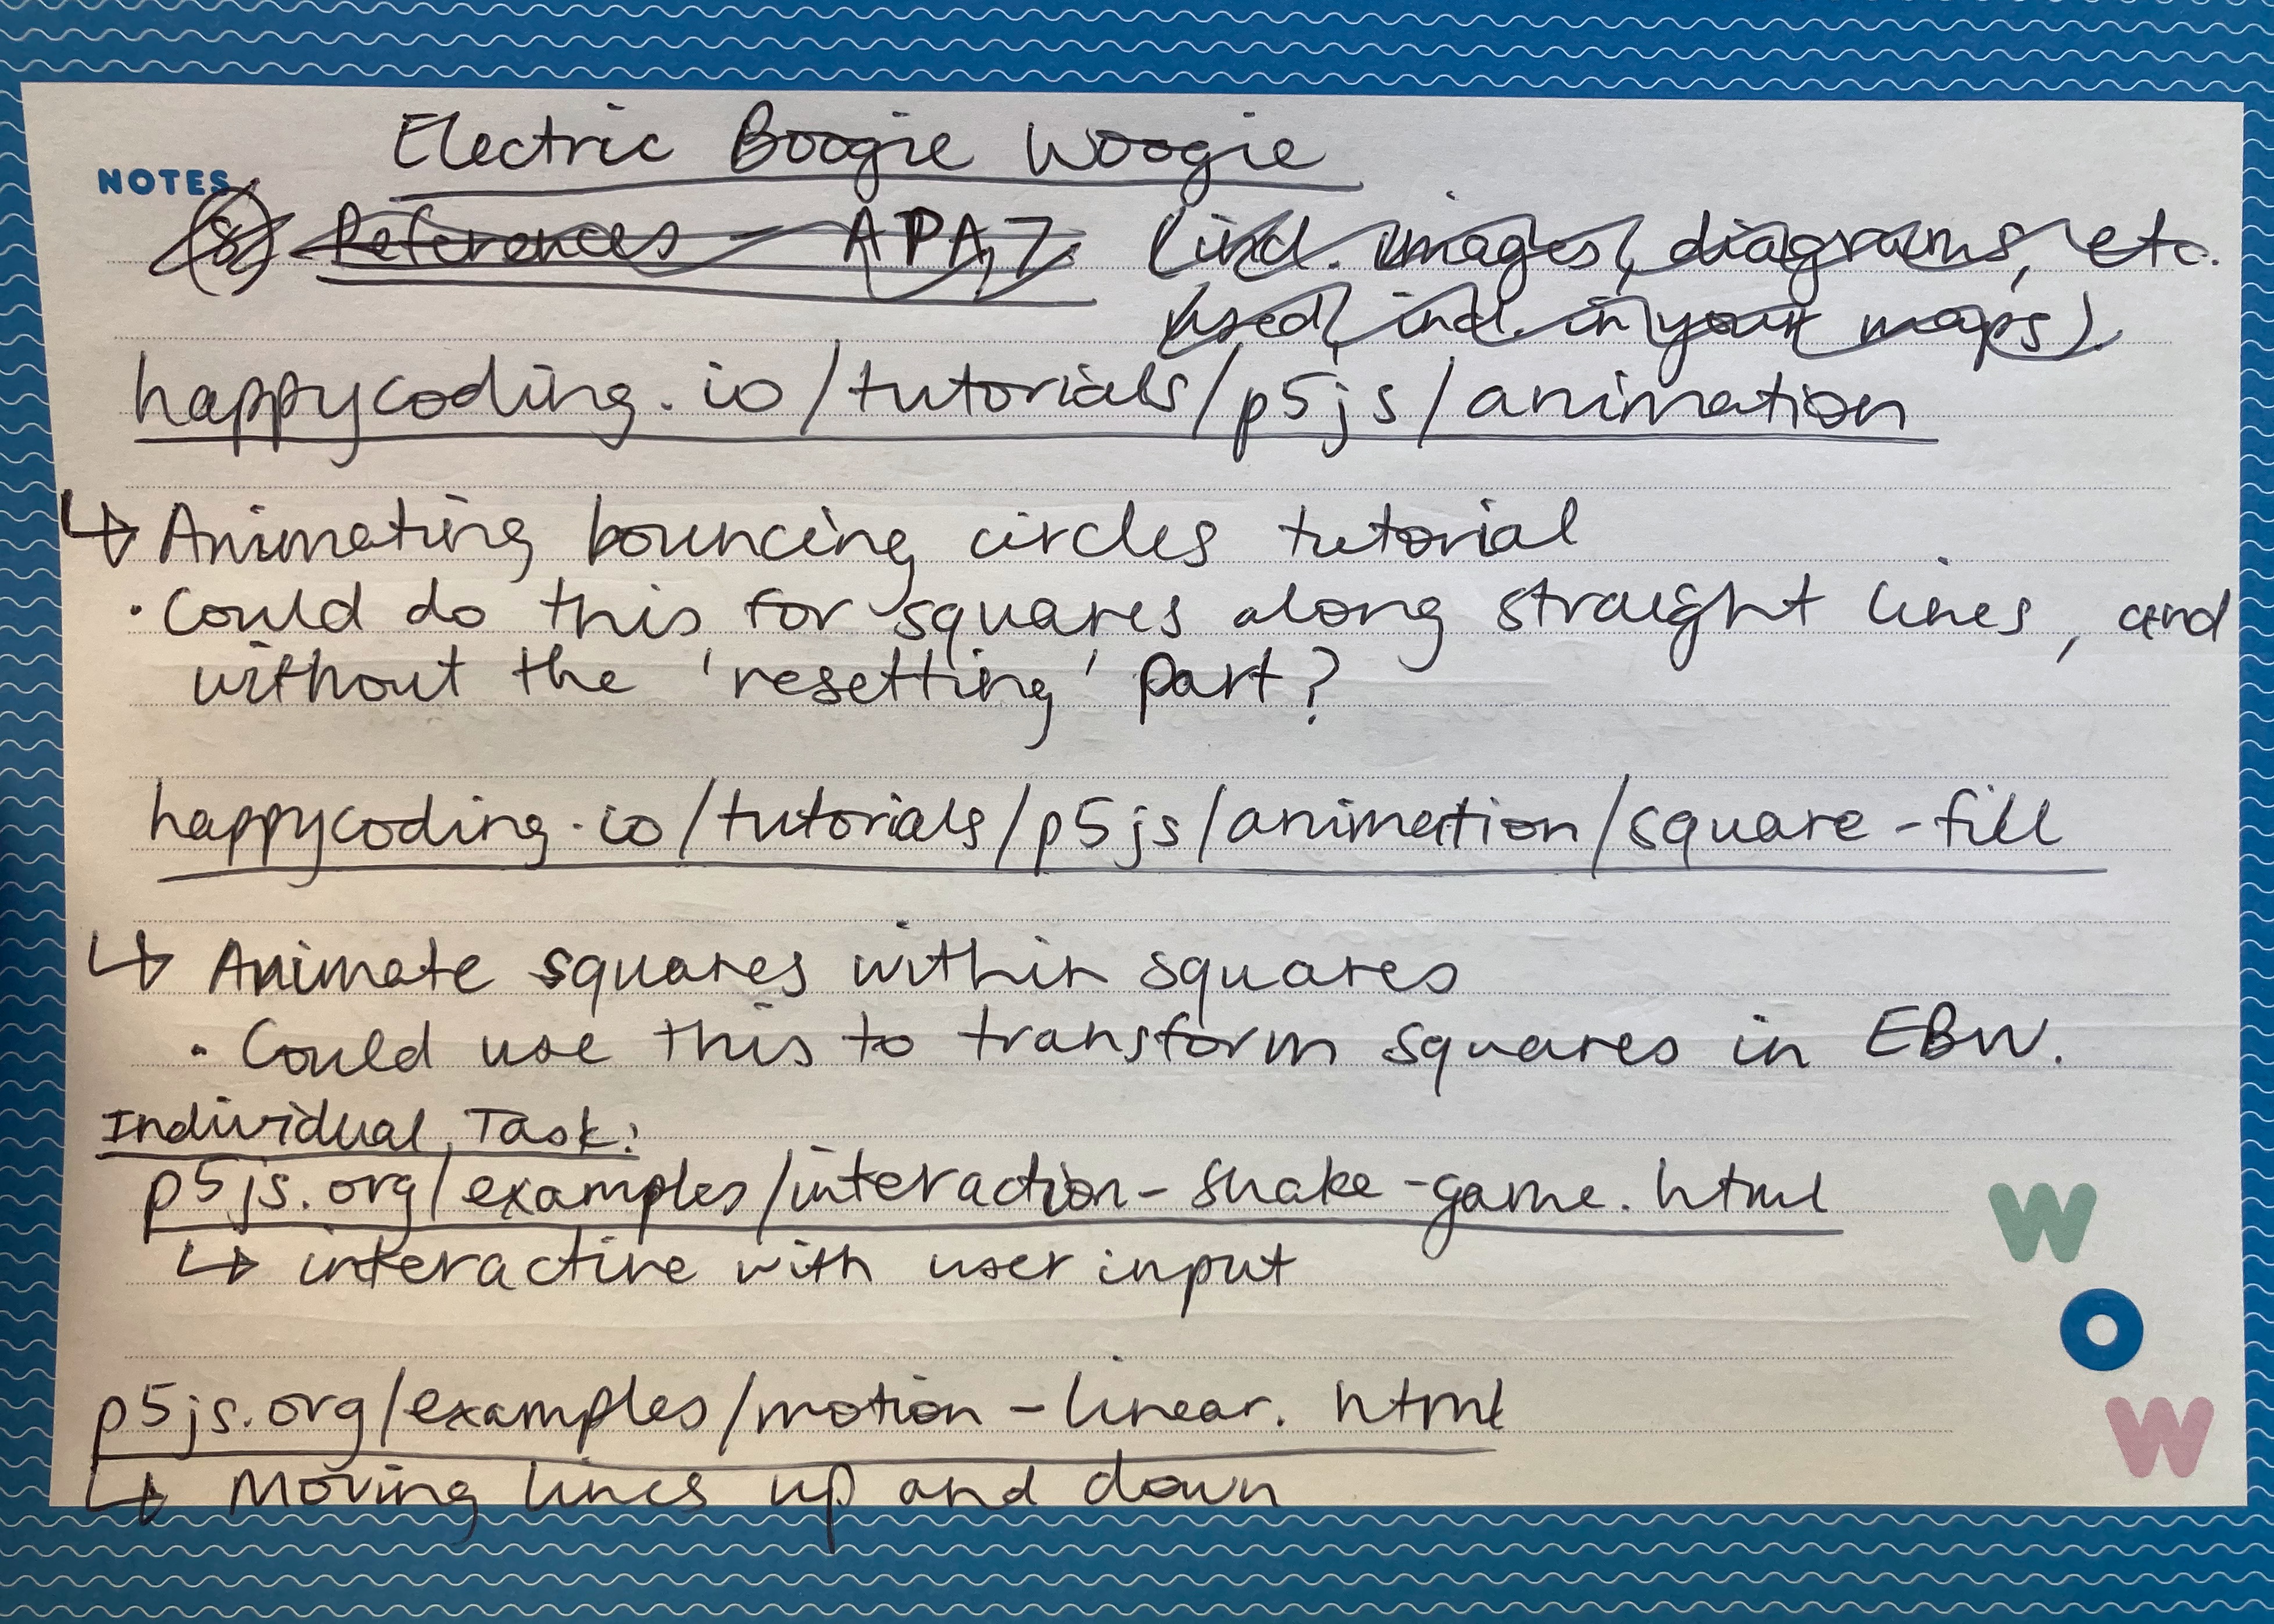 Electric Boogie Woogie
NOTES
(8) References - APA 7. (incl. images, diagrams, etc.
used, incl. in your maps).
happycoding.io/tutorials/p5js/animation
↳ Animating bouncing circles tutorial
· Could do this for squares along straight lines, and
without the 'resetting' part?
happycoding.io/tutorials/p5js/animation/square-fill
↳ Animate squares within squares
· Could use this to transform squares in EBW.
Individual Task:
p5js.org/examples/interaction-snake-game.html
↳ interactive with user input
p5js.org/examples/motion-linear.html
↳ Moving lines up and down
W
O
W